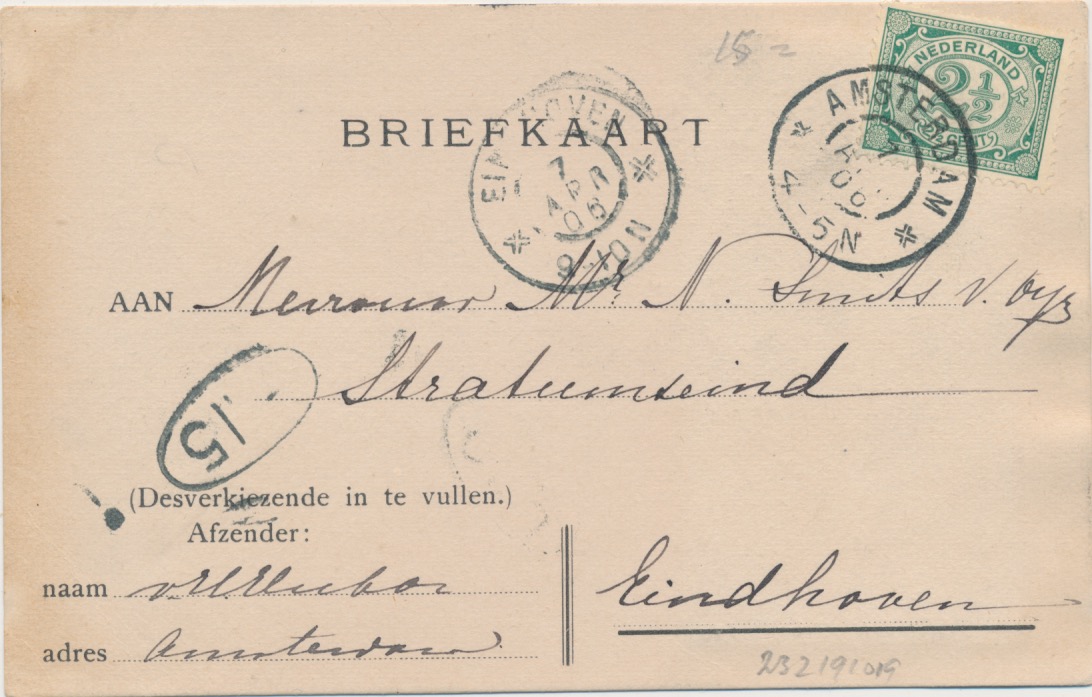 15 =
NEDERLAND
2½
2½ CENT
AMSTERDAM
7
06
4-5N
BRIEFKAART
EINDHOVEN
7
APR
06
9-10N
AAN Mevrouw Mr N. Smits v.
Stratumseind
15
(Desverkiezende in te vullen.)
Afzender:
naam
adres Amsterdam
Eindhoven
232191019